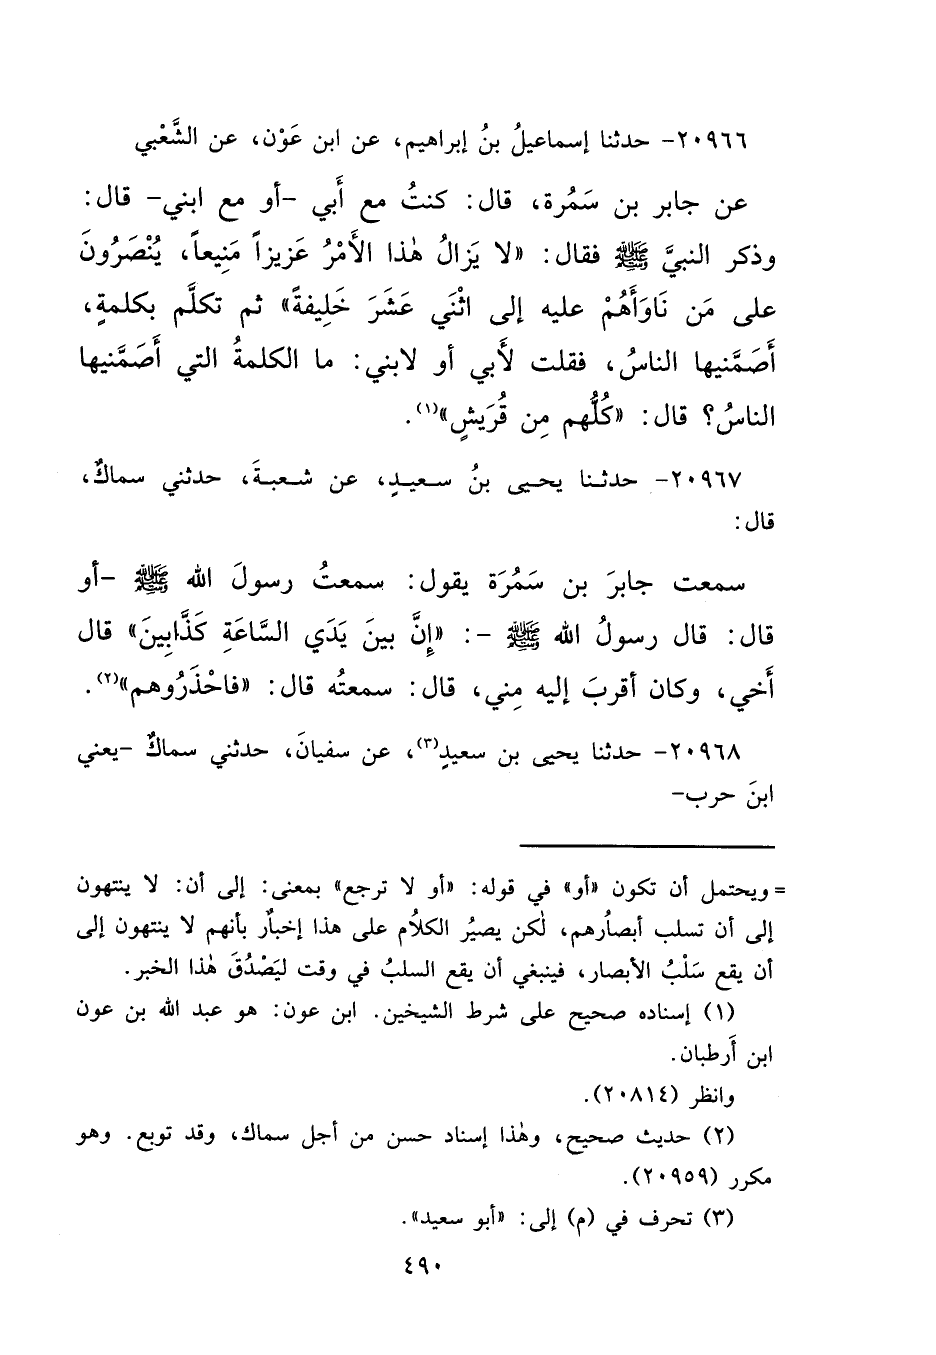 ٢٠٩٦٦- حدثنا إسماعيلُ بنُ إبراهيم، عن ابن عَوْن، عن الشَّعْبي
عن جابر بن سَمُرة، قال: كنتُ مع أَبي -أو مع ابني- قال:
وذكر النبيَّ ﷺ فقال: «لا يَزالُ هٰذا الأَمْرُ عَزيزاً مَنِيعاً، يُنْصَرُونَ
على مَن نَاوَأَهُمْ عليه إلى اثْنَي عَشَرَ خَلِيفةً» ثم تكلَّم بكلمةٍ،
أَصَمَّنيها الناسُ، فقلت لأَبي أو لابني: ما الكلمةُ التي أَصَمَّنيها
الناسُ؟ قال: «كُلُّهم مِن قُرَيشٍ»(١).
٢٠٩٦٧- حدثنا يحيى بنُ سعيدٍ، عن شعبةَ، حدثني سماكٌ،
قال:
سمعت جابرَ بن سَمُرَة يقول: سمعتُ رسولَ الله ﷺ -أو
قال: قال رسولُ الله ﷺ -: «إِنَّ بينَ يَدَي السَّاعَةِ كَذَّابِينَ» قال
أَخي، وكان أقربَ إليه مِني، قال: سمعتُه قال: «فاحْذَرُوهم»(٢).
٢٠٩٦٨- حدثنا يحيى بن سعيدٍ(٣)، عن سفيانَ، حدثني سماكٌ -يعني
ابنَ حرب-
= ويحتمل أن تكون «أو» في قوله: «أو لا ترجع» بمعنى: إلى أن: لا ينتهون
إلى أن تسلب أبصارُهم، لٰكن يصيرُ الكلامُ على هذا إخبارٌ بأنهم لا ينتهون إلى
أن يقع سَلْبُ الأبصار، فينبغي أن يقع السلبُ في وقت ليَصْدُقَ هٰذا الخبر.
(١) إسناده صحيح على شرط الشيخين. ابن عون: هو عبد الله بن عون
ابن أَرطبان.
وانظر (٢٠٨١٤).
(٢) حديث صحيح، وهٰذا إسناد حسن من أجل سماك، وقد توبع. وهو
مكرر (٢٠٩٥٩).
(٣) تحرف في (م) إلى: «أبو سعيد».
٤٩٠